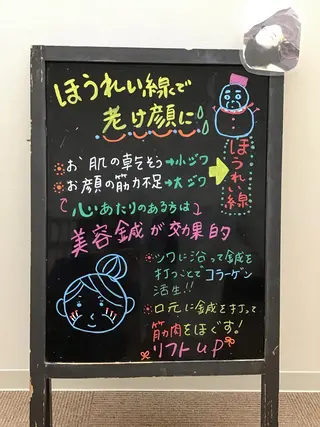 ほうれい線で
老け顔に
お肌の乾そう→小ジワ
お顔の筋力不足→大ジワ
ほうれい線
心あたりのある方は
美容鍼が効果的
シワに沿って鍼を
打つことでコラーゲン
活生!!
口元に鍼を打って
筋肉をほぐす!
リフトuP